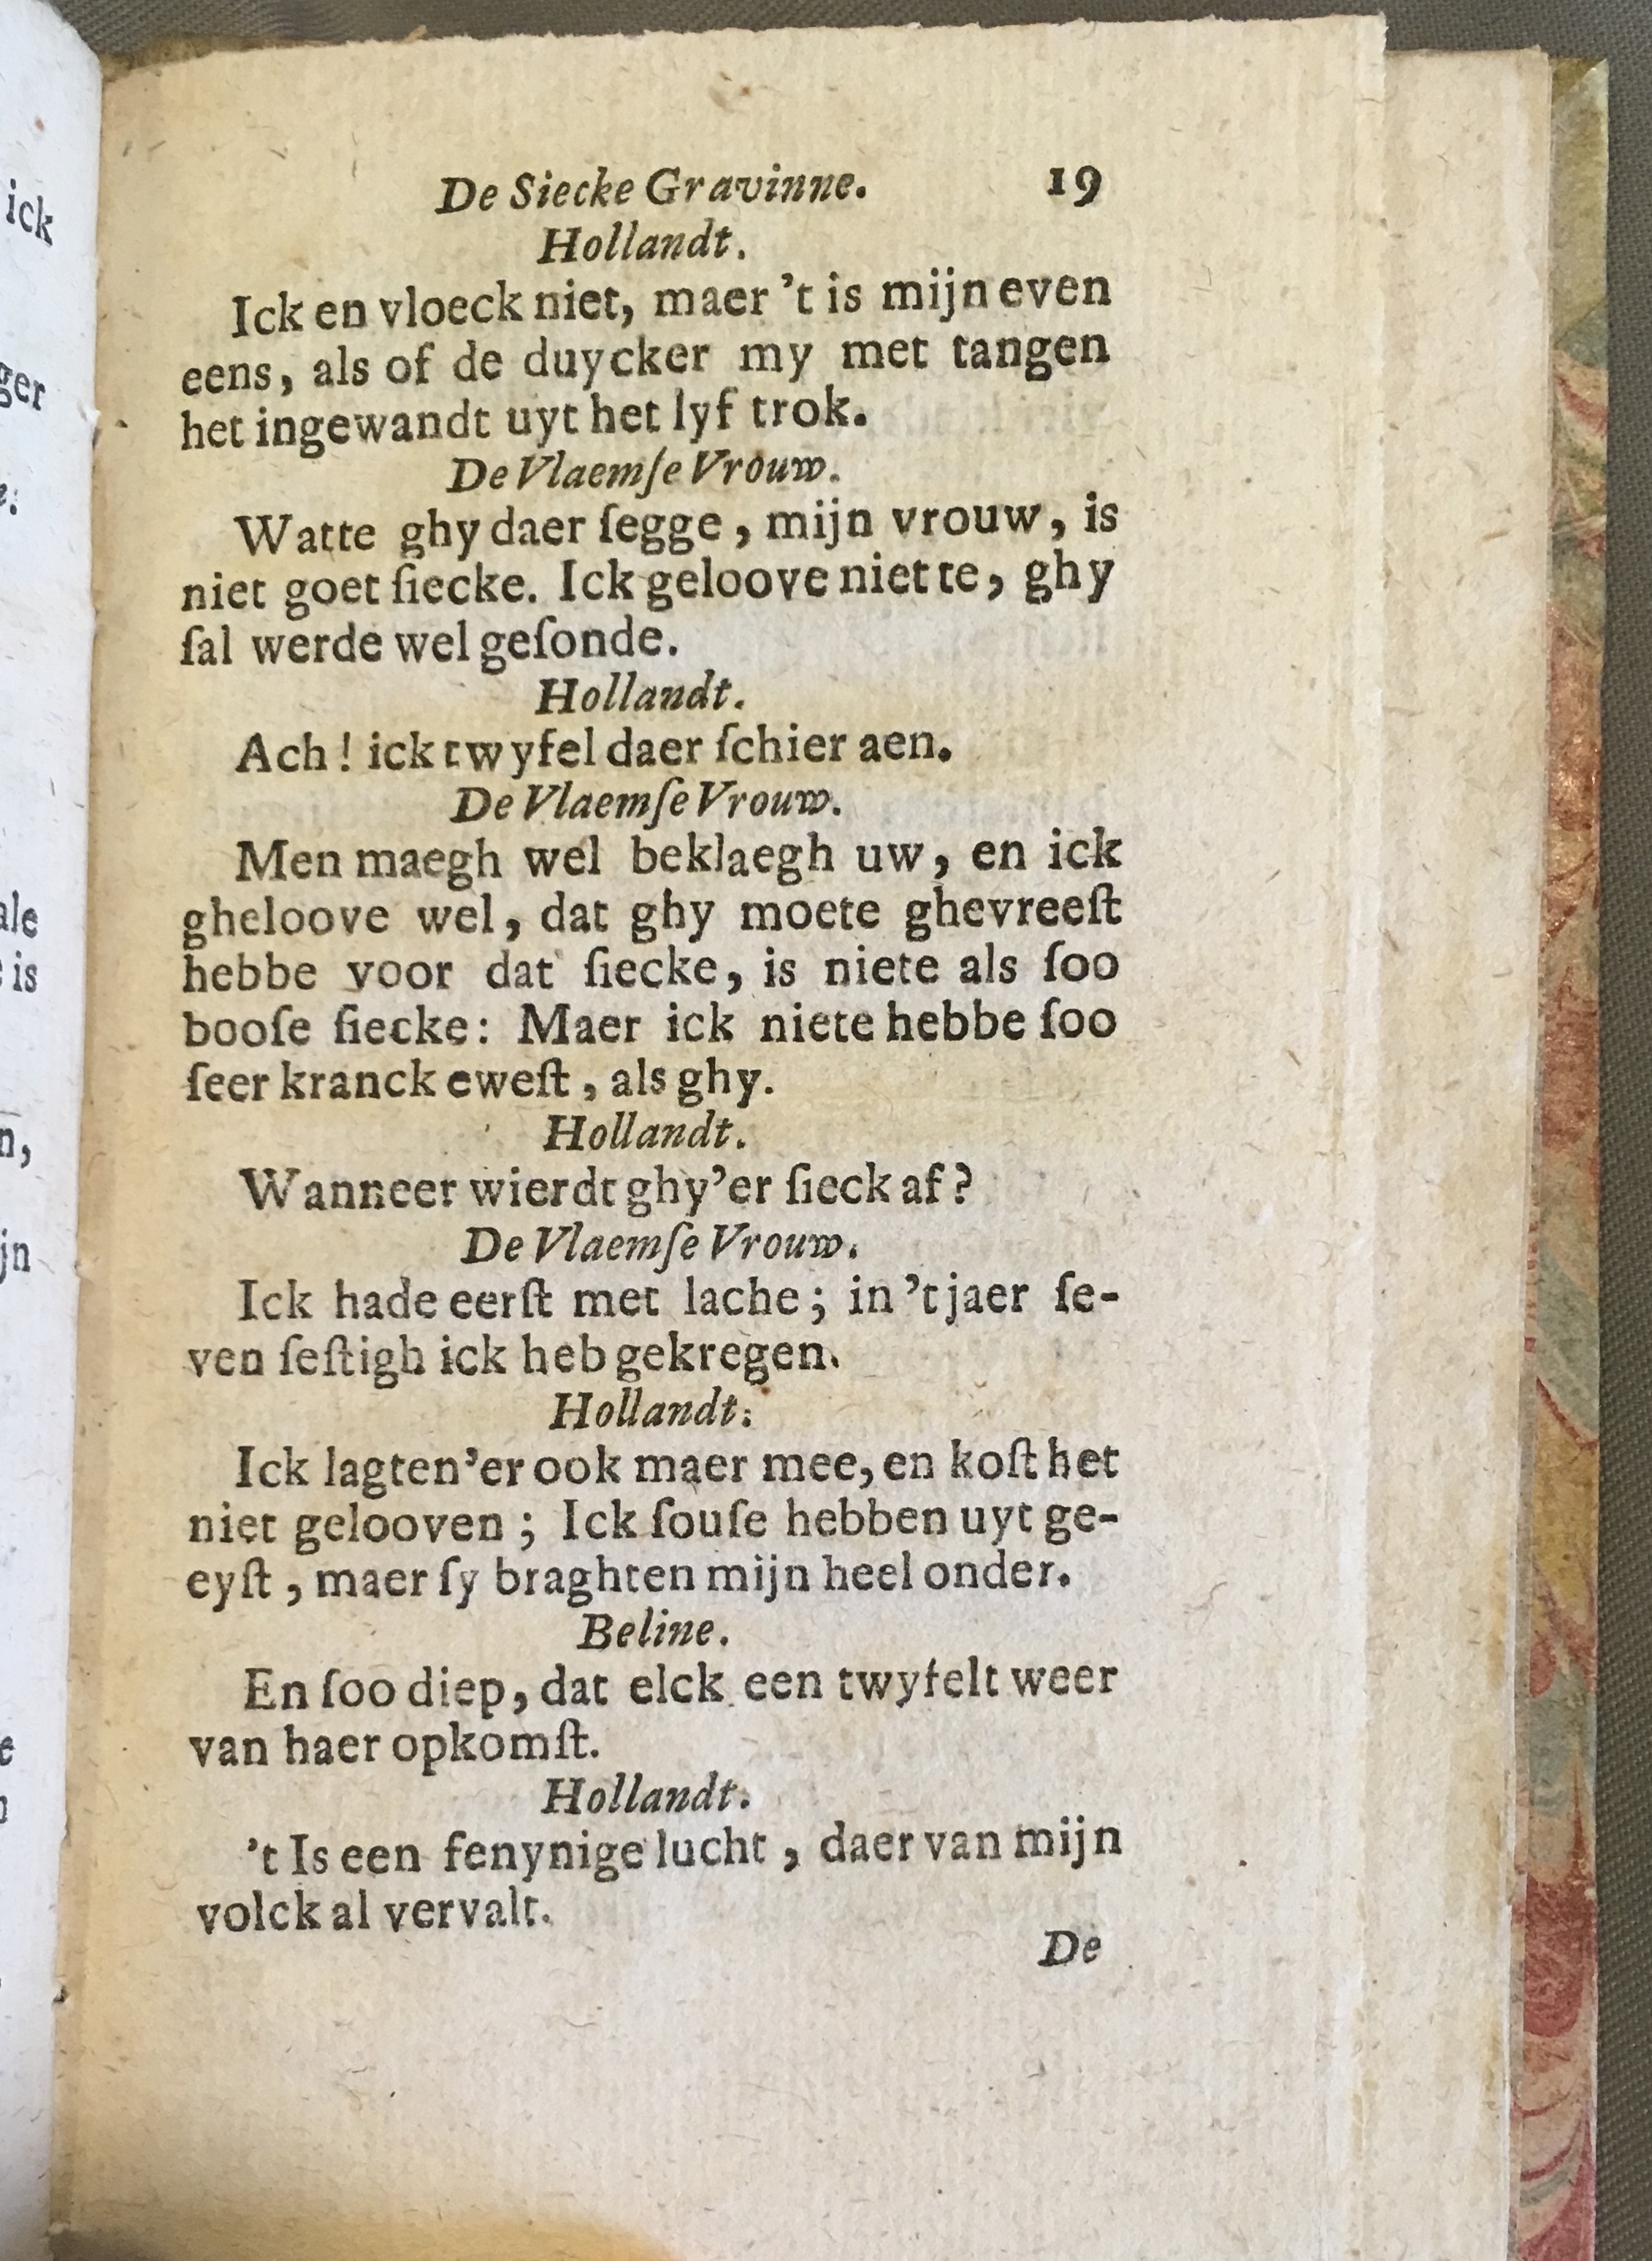 De Siecke Gravinne. 19
Hollandt.
Ick en vloeck niet, maer 't is mijn even
eens, als of de duycker my met tangen
het ingewandt uyt het lyf trok.
De Vlaemſe Vrouw.
Watte ghy daer ſegge, mijn vrouw, is
niet goet ſiecke. Ick geloove niet te, ghy
ſal werde wel geſonde.
Hollandt.
Ach! ick twyfel daer ſchier aen.
De Vlaemſe Vrouw.
Men maegh wel beklaegh uw, en ick
gheloove wel, dat ghy moete ghevreeſt
hebbe voor dat ſiecke, is niete als ſoo
booſe ſiecke: Maer ick niete hebbe ſoo
ſeer kranck eweſt, als ghy.
Hollandt.
Wanneer wierdt ghy'er ſieck af?
De Vlaemſe Vrouw.
Ick hade eerſt met lache; in 't jaer ſe-
ven ſeſtigh ick heb gekregen.
Hollandt.
Ick lagten'er ook maer mee, en koſt het
niet gelooven; Ick ſouſe hebben uyt ge-
eyſt, maer ſy braghten mijn heel onder.
Beline.
En ſoo diep, dat elck een twyfelt weer
van haer opkomſt.
Hollandt.
't Is een fenynige lucht, daer van mijn
volck al vervalt.
De
ick
ger
ale
is
n,
jn